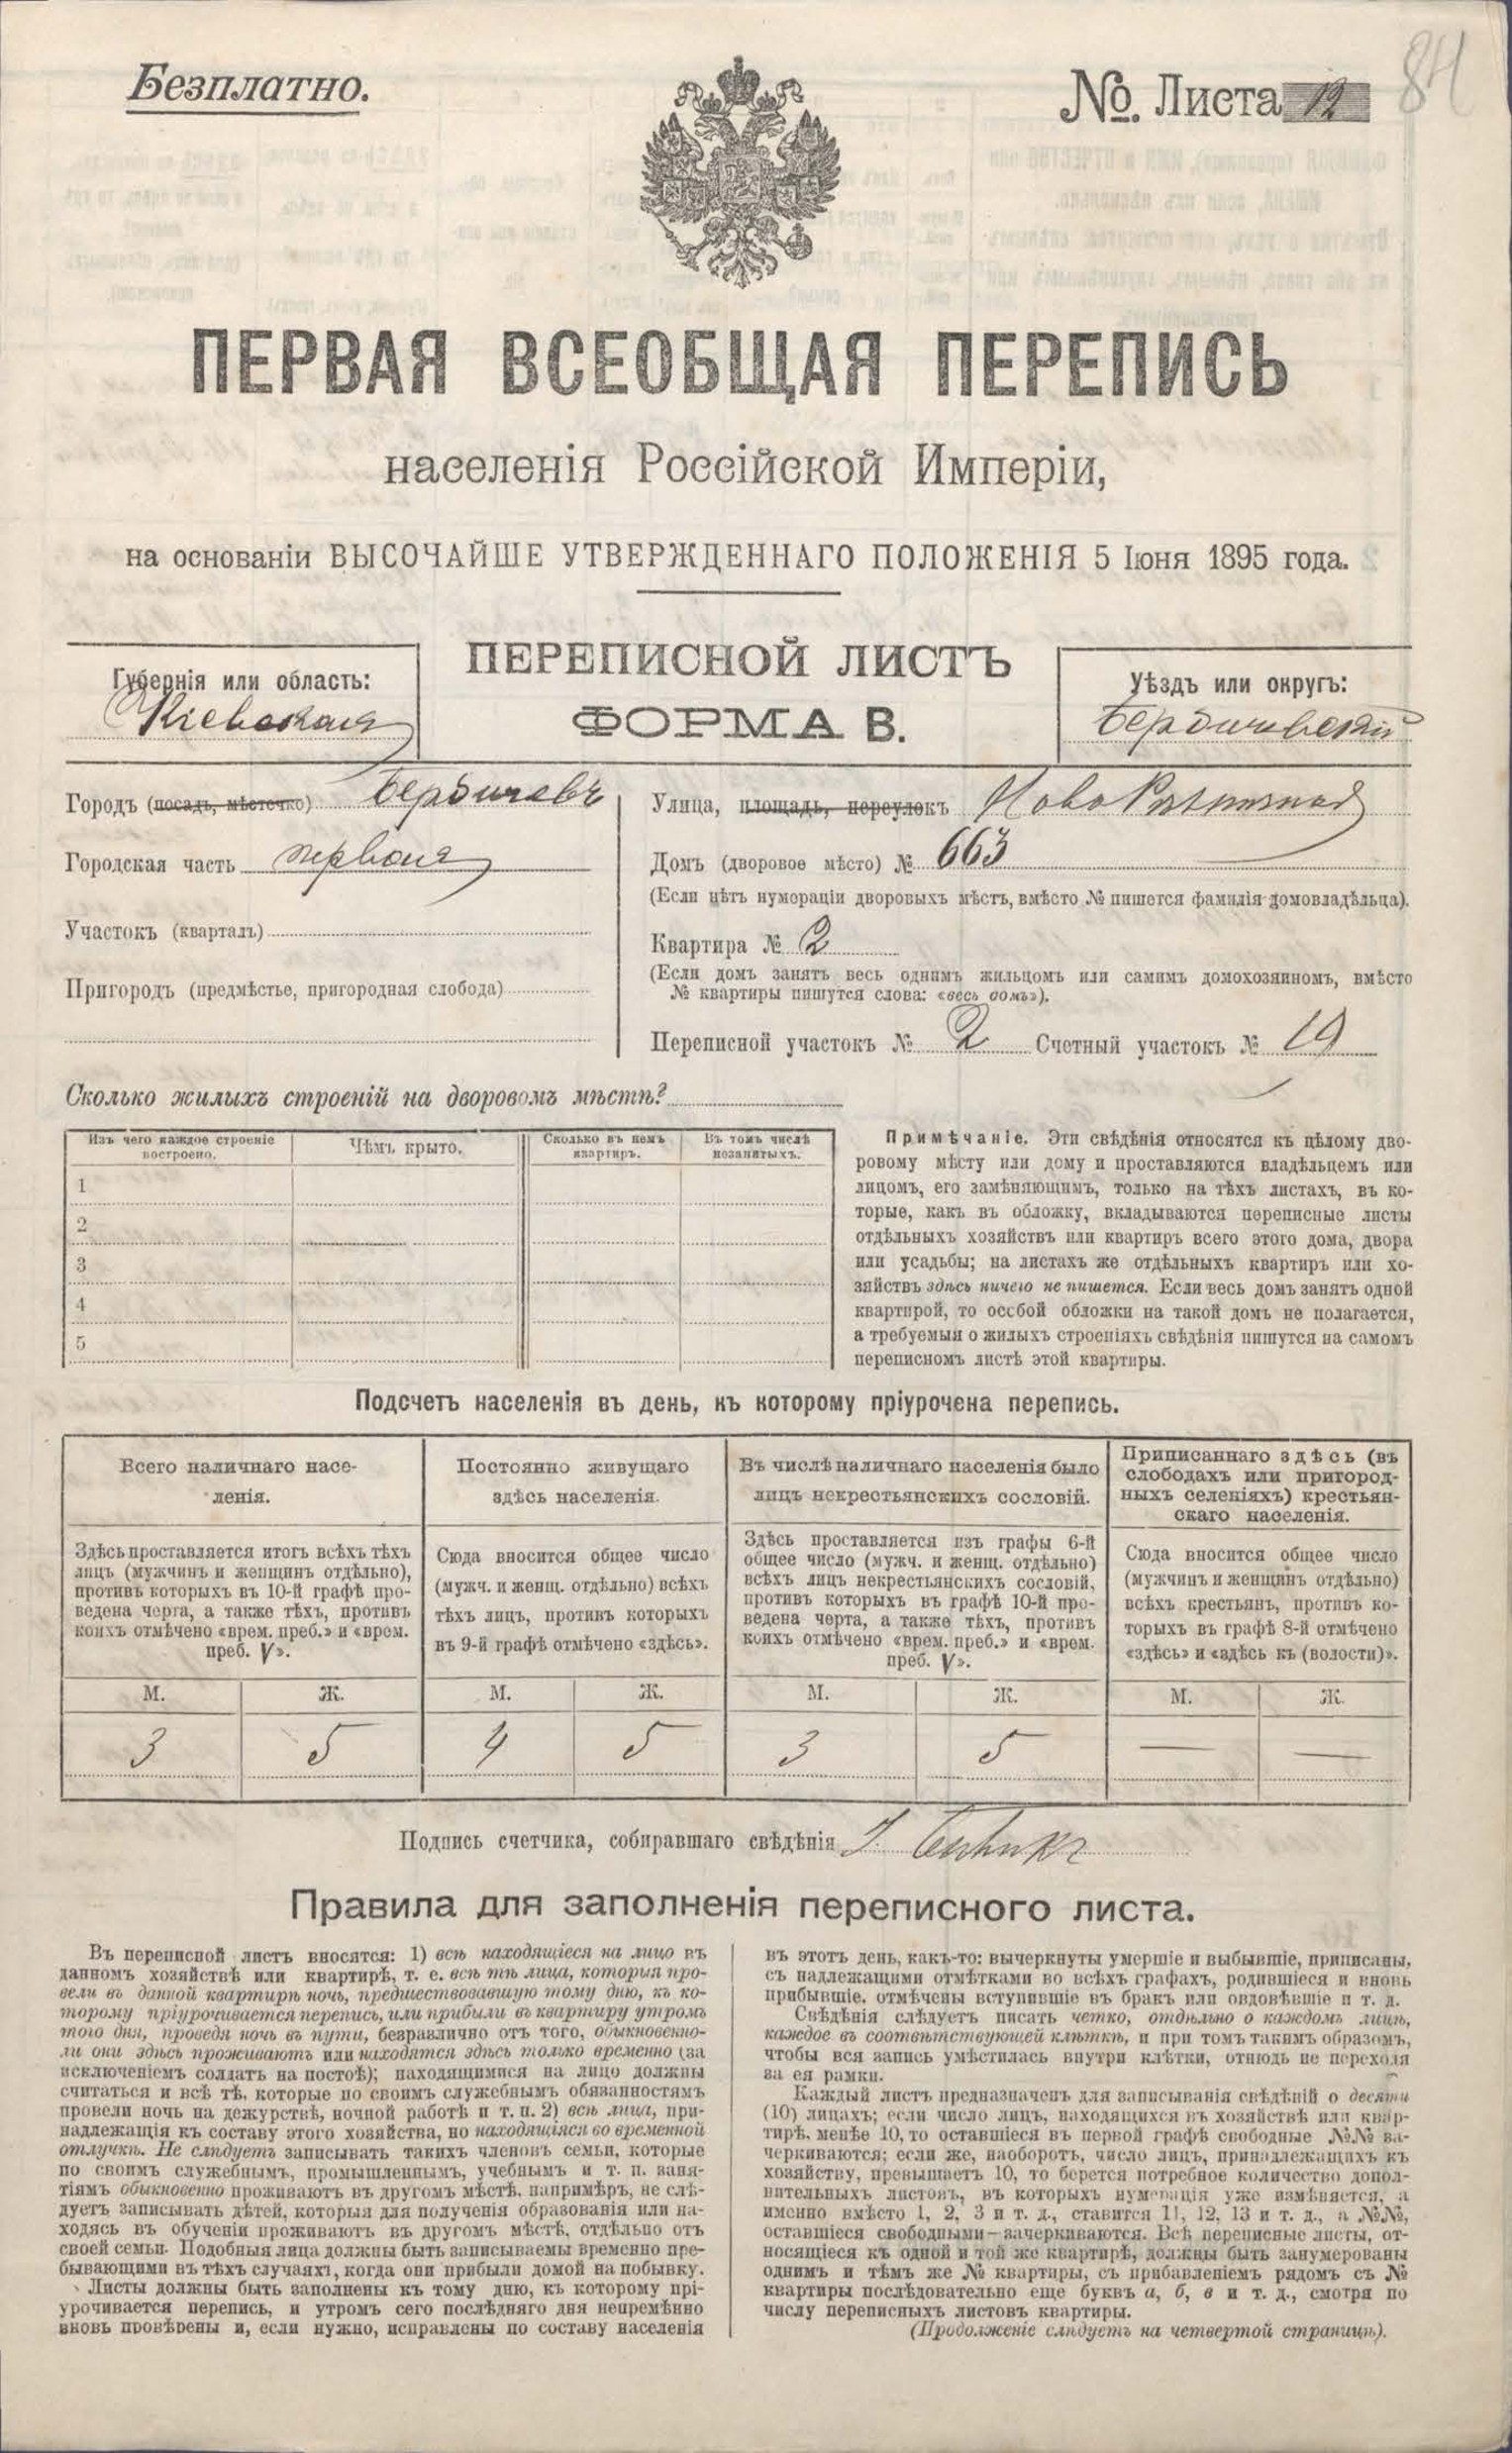 Безплатно.
№. Листа 12
84
ПЕРВАЯ ВСЕОБЩАЯ ПЕРЕПИСЬ
населенія Россійской Имперіи,
на основаніи ВЫСОЧАЙШЕ УТВЕРЖДЕННАГО ПОЛОЖЕНІЯ 5 Іюня 1895 года.
ПЕРЕПИСНОЙ ЛИСТЪ
ФОРМА В.
Губернія или область:
Кіевская
Уѣздъ или округъ:
Бердичевскій
Городъ (посадъ, мѣстечко) Бердичевъ
Городская часть первая
Участокъ (кварталъ)
Пригородъ (предмѣстье, пригородная слобода)
Улица, площадь, переулокъ Ново
Домъ (дворовое мѣсто) № 663
(Если нѣтъ нумораціи дворовыхъ мѣстъ, вмѣсто № пишется фамилія домовладѣльца).
Квартира № 2
(Если домъ занятъ весь однимъ жильцомъ или самимъ домохозяиномъ, вмѣсто
№ квартиры пишутся слова: «весь домъ»).
Переписной участокъ № 2 Счетный участокъ № 19
Сколько жилыхъ строеній на дворовомъ мѣстѣ?
Изъ чего каждое строеніе
построено.
Чѣмъ крыто.
Сколько въ немъ
квартиръ.
Въ томъ числѣ
незанятыхъ.
1
2
3
4
5
Примѣчаніе. Эти свѣдѣнія относятся къ цѣлому дво-
ровому мѣсту или дому и проставляются владѣльцемъ или
лицомъ, его замѣняющимъ, только на тѣхъ листахъ, въ ко-
торые, какъ въ обложку, вкладываются переписные листы
отдѣльныхъ хозяйствъ или квартиръ всего этого дома, двора
или усадьбы; на листахъ же отдѣльныхъ квартиръ или хо-
зяйствъ здѣсь ничего не пишется. Если весь домъ занятъ одной
квартирой, то особой обложки на такой домъ не полагается,
а требуемыя о жилыхъ строеніяхъ свѣдѣнія пишутся на самомъ
переписномъ листѣ этой квартиры.
Подсчетъ населенія въ день, къ которому пріурочена перепись.
Всего наличнаго насе-
ленія.
Постоянно живущаго
здѣсь населенія.
Въ числѣ наличнаго населенія было
лицъ некрестьянскихъ сословій.
Приписаннаго здѣсь (въ
слободахъ или пригород-
ныхъ селеніяхъ) крестьян-
скаго населенія.
Здѣсь проставляется итогъ всѣхъ тѣхъ
лицъ (мужчинъ и женщинъ отдѣльно),
противъ которыхъ въ 10-й графѣ про-
ведена черта, а также тѣхъ, противъ
коихъ отмѣчено «врем. преб.» и «врем.
преб. V».
Сюда вносится общее число
(мужч. и женщ. отдѣльно) всѣхъ
тѣхъ лицъ, противъ которыхъ
въ 9-й графѣ отмѣчено «здѣсь».
Здѣсь проставляется изъ графы 6-й
общее число (мужч. и женщ. отдѣльно)
всѣхъ лицъ некрестьянскихъ сословій,
противъ которыхъ въ графѣ 10-й про-
ведена черта, а также тѣхъ, противъ
коихъ отмѣчено «врем. преб.» и «врем.
преб. V».
Сюда вносится общее число
(мужчинъ и женщинъ отдѣльно)
всѣхъ крестьянъ, противъ ко-
торыхъ въ графѣ 8-й отмѣчено
«здѣсь» и «здѣсь къ (волости)».
М. Ж. М. Ж. М. Ж. М. Ж.
3 5 4 5 3 5 — —
Подпись счетчика, собиравшаго свѣдѣнія
Правила для заполненія переписного листа.
Въ переписной листъ вносятся: 1) всѣ находящіеся на лицо въ
данномъ хозяйствѣ или квартирѣ, т. е. всѣ тѣ лица, которыя про-
вели въ данной квартирѣ ночь, предшествовавшую тому дню, къ ко-
торому пріурочивается перепись, или прибыли въ квартиру утромъ
того дня, проведя ночь въ пути, безразлично отъ того, обыкновенно-
ли они здѣсь проживаютъ или находятся здѣсь только временно (за
исключеніемъ солдатъ на постоѣ); находящимися на лицо должны
считаться и всѣ тѣ, которые по своимъ служебнымъ обязанностямъ
провели ночь на дежурствѣ, ночной работѣ и т. п. 2) всѣ лица, при-
надлежащія къ составу этого хозяйства, но находящіяся во временной
отлучкѣ. Не слѣдуетъ записывать такихъ членовъ семьи, которые
по своимъ служебнымъ, промышленнымъ, учебнымъ и т. п. заня-
тіямъ обыкновенно проживаютъ въ другомъ мѣстѣ, напримѣръ, не слѣ-
дуетъ записывать дѣтей, которыя для полученія образованія или на-
ходясь въ обученіи проживаютъ въ другомъ мѣстѣ, отдѣльно отъ
своей семьи. Подобныя лица должны быть записываемы временно пре-
бывающими въ тѣхъ случаяхъ, когда они прибыли домой на побывку.
Листы должны быть заполнены къ тому дню, къ которому прі-
урочивается перепись, и утромъ сего послѣдняго дня непремѣнно
вновь провѣрены и, если нужно, исправлены по составу населенія
въ этотъ день, какъ-то: вычеркнуты умершіе и выбывшіе, приписаны,
съ надлежащими отмѣтками во всѣхъ графахъ, родившіеся и вновь
прибывшіе, отмѣчены вступившіе въ бракъ или овдовѣвшіе и т. д.
Свѣдѣнія слѣдуетъ писать четко, отдѣльно о каждомъ лицѣ,
каждое въ соотвѣтствующей клѣткѣ, и при томъ такимъ образомъ,
чтобы вся запись умѣстилась внутри клѣтки, отнюдь не переходя
за ея рамки.
Каждый листъ предназначенъ для записыванія свѣдѣній о десяти
(10) лицахъ; если число лицъ, находящихся въ хозяйствѣ или квар-
тирѣ, менѣе 10, то оставшіеся въ первой графѣ свободные №№ за-
черкиваются; если же, наоборотъ, число лицъ, принадлежащихъ къ
хозяйству, превышаетъ 10, то берется потребное количество допол-
нительныхъ листовъ, въ которыхъ нумерація уже измѣняется, а
именно вмѣсто 1, 2, 3 и т. д., ставится 11, 12, 13 и т. д., а №№,
оставшіеся свободными—зачеркиваются. Всѣ переписные листы, от-
носящіеся къ одной и той же квартирѣ, должны быть занумерованы
однимъ и тѣмъ же № квартиры, съ прибавленіемъ рядомъ съ №
квартиры послѣдовательно еще буквъ а, б, в и т. д., смотря по
числу переписныхъ листовъ квартиры.
(Продолженіе слѣдуетъ на четвертой страницѣ).